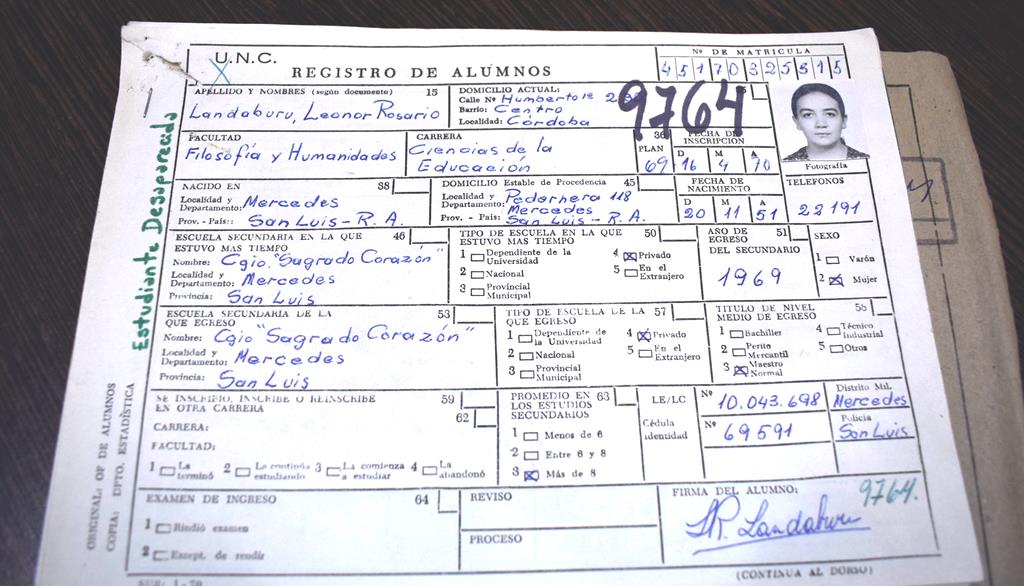 U.N.C.
REGISTRO DE ALUMNOS
Nº DE MATRICULA
45170325515
APELLIDO Y NOMBRES (según documento) 15
Landaburu, Leonor Rosario
DOMICILIO ACTUAL:
Calle Nº Humberto 1º
Barrio: Centro
Localidad: Córdoba
9764
Fotografía
FACULTAD
Filosofía y Humanidades
CARRERA
Ciencias de la
Educación
36
PLAN
69
FECHA DE
INSCRIPCION
D M A
16 4 70
NACIDO EN 38
Localidad y
Departamento: Mercedes
Prov. - País: San Luis - R. A.
DOMICILIO Estable de Procedencia 45
Localidad y Pedernera 118
Departamento: Mercedes
Prov. - País: San Luis - R. A.
FECHA DE
NACIMIENTO
D M A
20 11 51
TELEFONOS
22191
ESCUELA SECUNDARIA EN LA QUE 46
ESTUVO MAS TIEMPO
Nombre: Cgio. "Sagrado Corazón"
Localidad y
Departamento: Mercedes
Provincia: San Luis
TIPO DE ESCUELA EN LA QUE 50
ESTUVO MAS TIEMPO
1 Dependiente de la
Universidad
2 Nacional
3 Provincial
Municipal
4 Privado
5 En el
Extranjero
AÑO DE 51
EGRESO
DEL SECUNDARIO
1969
SEXO
1 Varón
2 Mujer
ESCUELA SECUNDARIA DE LA 53
QUE EGRESO
Nombre: Cgio "Sagrado Corazón"
Localidad y
Departamento: Mercedes
Provincia: San Luis
TIPO DE ESCUELA DE LA 57
QUE EGRESO
1 Dependiente de
la Universidad
2 Nacional
3 Provincial
Municipal
4 Privado
5 En el
Extranjero
TITULO DE NIVEL 58
MEDIO DE EGRESO
1 Bachiller
2 Perito
Mercantil
3 Maestro
Normal
4 Técnico
Industrial
5 Otros
SE INSCRIBIO, INSCRIBE O REINSCRIBE 59
EN OTRA CARRERA
62
CARRERA:
FACULTAD:
1 La
terminó
2 La continúa
estudiando
3 La comienza
a estudiar
4 La
abandonó
PROMEDIO EN 63
LOS ESTUDIOS
SECUNDARIOS
1 Menos de 6
2 Entre 6 y 8
3 Más de 8
LE/LC
Nº 10.043.698
Cédula
identidad
Nº 69591
Distrito Mil.
Mercedes
Policía
San Luis
EXAMEN DE INGRESO 64
1 Rindió examen
2 Except. de rendir
REVISO
PROCESO
FIRMA DEL ALUMNO:
9764.
LR. Landaburu
(CONTINUA AL DORSO)
Estudiante Desaparecida
ORIGINAL: OF DE ALUMNOS
COPIA: DPTO. ESTADÍSTICA